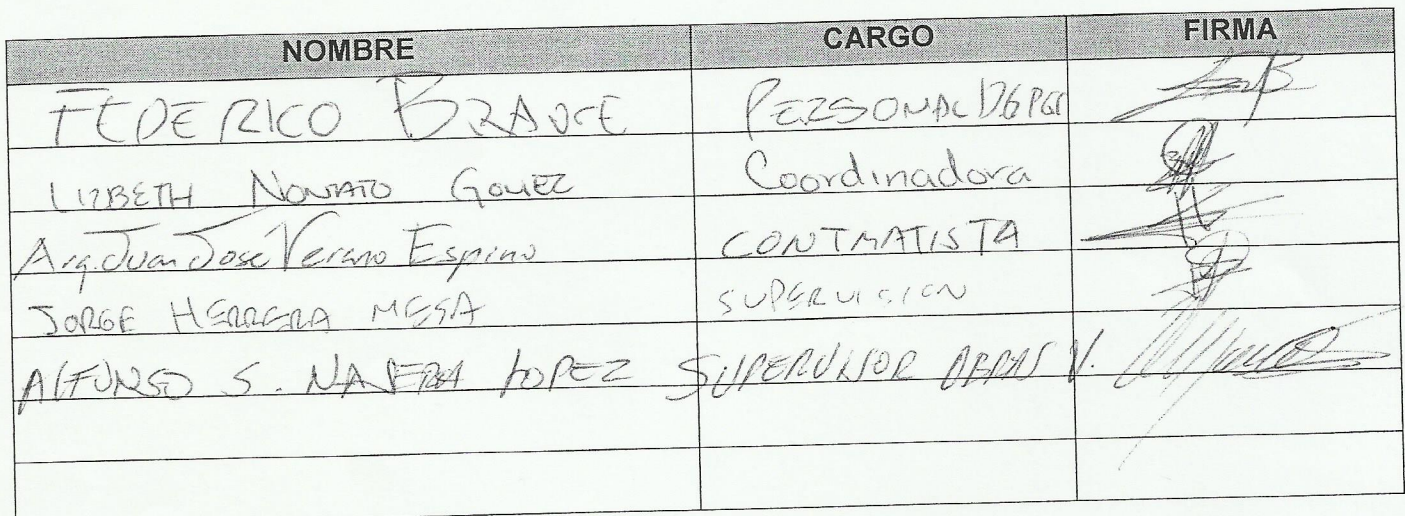 NOMBRE CARGO FIRMA
FEDERICO PERSONAL
LIZBETH NONATO GOMEZ Coordinadora
Arq. Juan José Verano Espino CONTRATISTA
JORGE HERRERA MESA SUPERVISION
ALFONSO S. NAJERA LOPEZ SUPERVISOR OBRAS V.